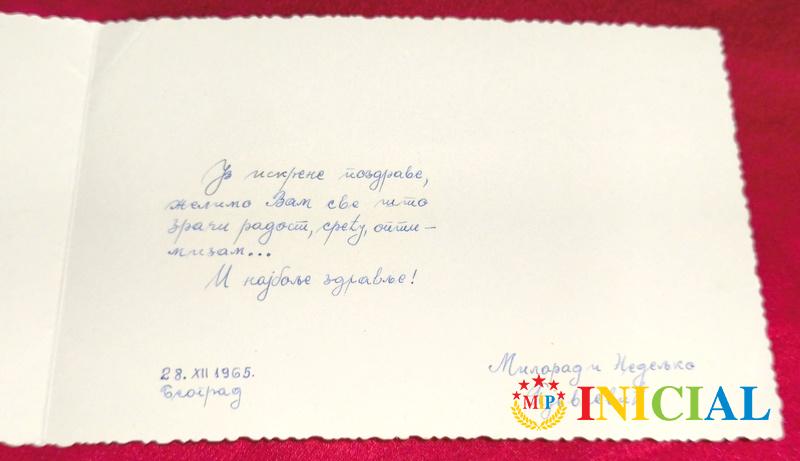 Уз искрене поздраве,
желимо Вам све што
зрачи радост, срећу, опти-
мизам...
И најбоље здравље!
28. XII 1965.
Београд
Милорад и Недељко
MIP INICIAL